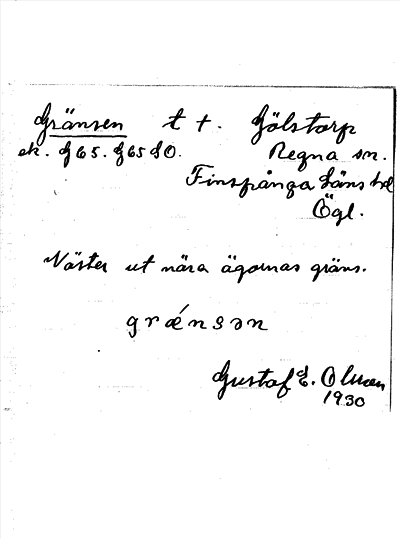 Gränsen t t. Gölstorp
ek. J 65. J65 d O. Regna sn.
Finspånga läns hd
Ögl.
Väster ut nära ägornas gräns.
grǽnsən
Gustaf E. Olsson
1930